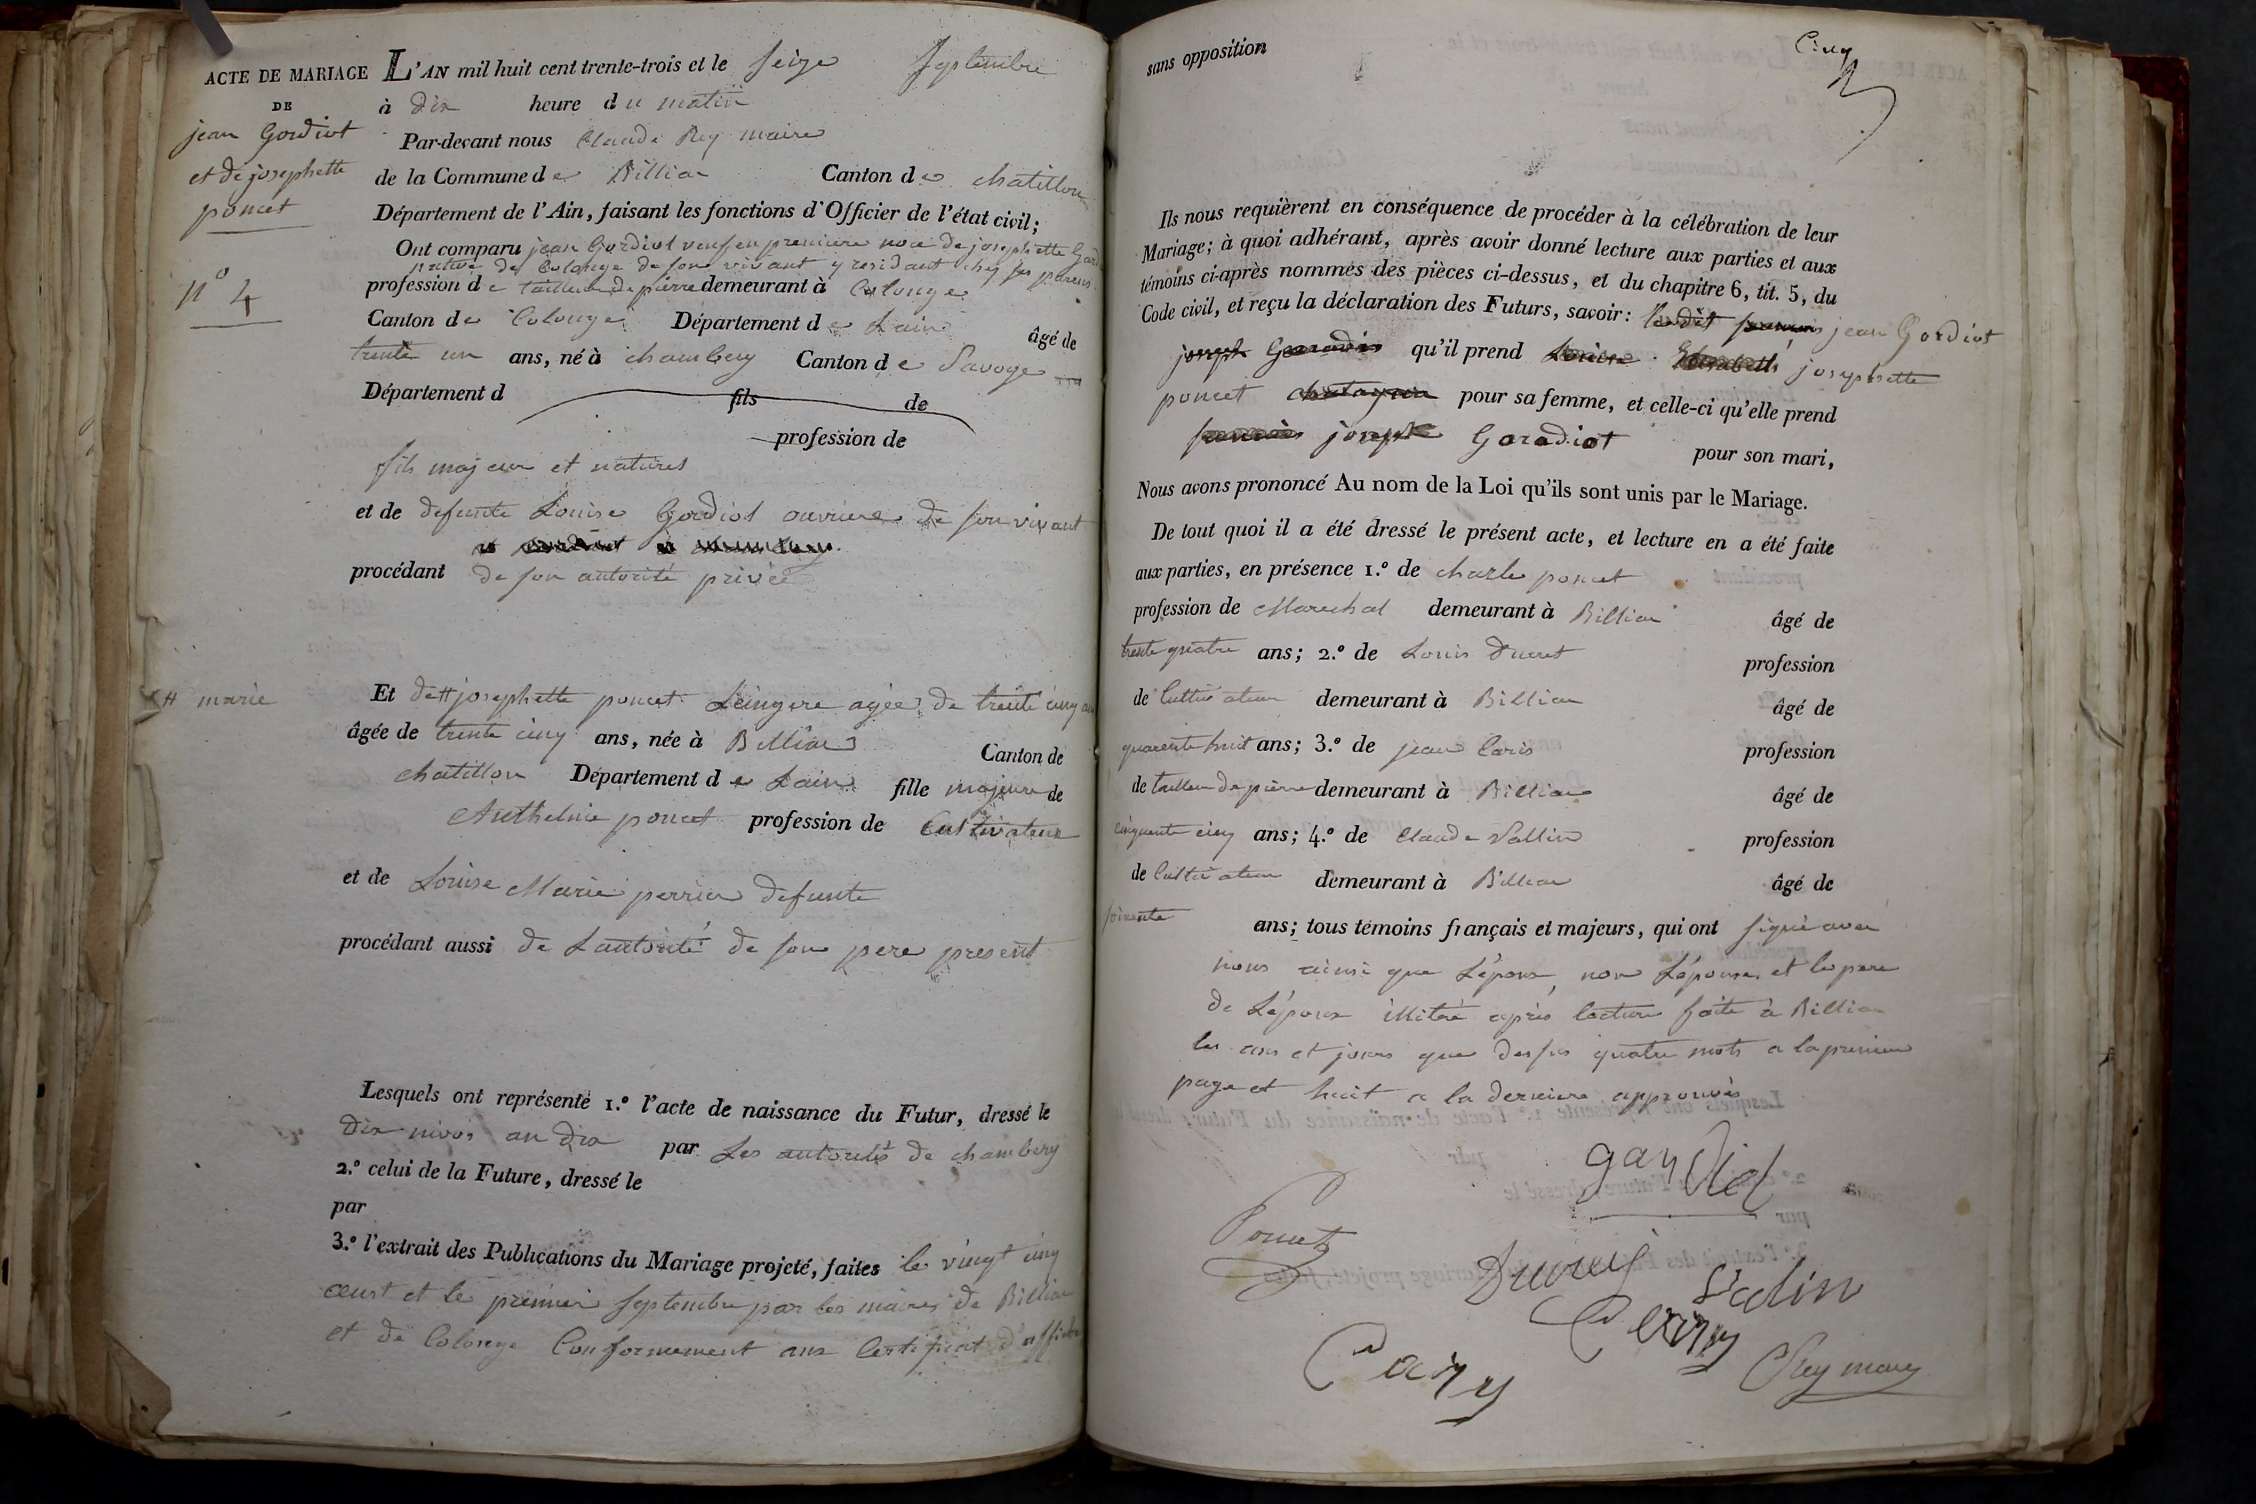 ACTE DE MARIAGE
DE
jean Gordiot
et de josephette
poncet
n° 4
L'AN mil huit cent trente-trois et le seize Septembre
à dix heure du matin
Par-devant nous Claude Rey maire
de la Commune de Billiat Canton de chatillon
Département de l'Ain, faisant les fonctions d'Officier de l'état civil;
Ont comparu jean Gordiot veuf en premiere noce de josephette
native de Colonge de son vivant y residant chez ses parens
profession de tailleur de pierre demeurant à Colonge
Canton de Colonge Département de Lain âgé de
trente un ans, né à chambery Canton de Savoye
Département d fils de
profession de
fils majeur et naturel
et de defunte Louise Gordiot ouvriere de son vivant
procédant de son autorité privée
# marie
Et de # josephette poncet Leingere agée de trente cinq ans
âgée de trente cinq ans, née à Billiat Canton de
chatillon Département de Lain fille majeure de
Anthelme poncet profession de Cultivateur
et de Louise Marie perrier defunte
procédant aussi de Lautorité de son pere present
Lesquels ont représenté 1.° l'acte de naissance du Futur, dressé le
Dix nivos an dix par Les autorités de chambery
2.° celui de la Future, dressé le
par
3.° l'extrait des Publications du Mariage projeté, faites le vingt cinq
aoust et le premier Septembre par les maires de Billiat
et de Colonge Conformement aux Certificat d'affiche
sans opposition
Cinq
Ils nous requièrent en conséquence de procéder à la célébration de leur
Mariage; à quoi adhérant, après avoir donné lecture aux parties et aux
témoins ci-après nommés des pièces ci-dessus, et du chapitre 6, tit. 5, du
Code civil, et reçu la déclaration des Futurs, savoir: Ledit jean Gordiot
joseph qu'il prend Louise josephette
poncet pour sa femme, et celle-ci qu'elle prend
joseph Garadiot pour son mari,
Nous avons prononcé Au nom de la Loi qu'ils sont unis par le Mariage.
De tout quoi il a été dressé le présent acte, et lecture en a été faite
aux parties, en présence 1.° de charle poncet
profession de Marechal demeurant à Billiat âgé de
trente quatre ans; 2.° de Louis Ducret profession
de Cultivateur demeurant à Billiat âgé de
quarente huit ans; 3.° de jean profession
de tailleur de pierre demeurant à Billiat âgé de
cinquante cinq ans; 4.° de Claude Vallin profession
de Cultivateur demeurant à Billiat âgé de
soixente ans; tous témoins français et majeurs, qui ont signé avec
nous ainsi que Lépoux, non Lépouse et le pere
de Lépouse illitéré après lecture faite à Billiat
les ans et jours que dessus quatre mots a la premiere
page et huit a la derniere approuvés
Poncet
Rey maire